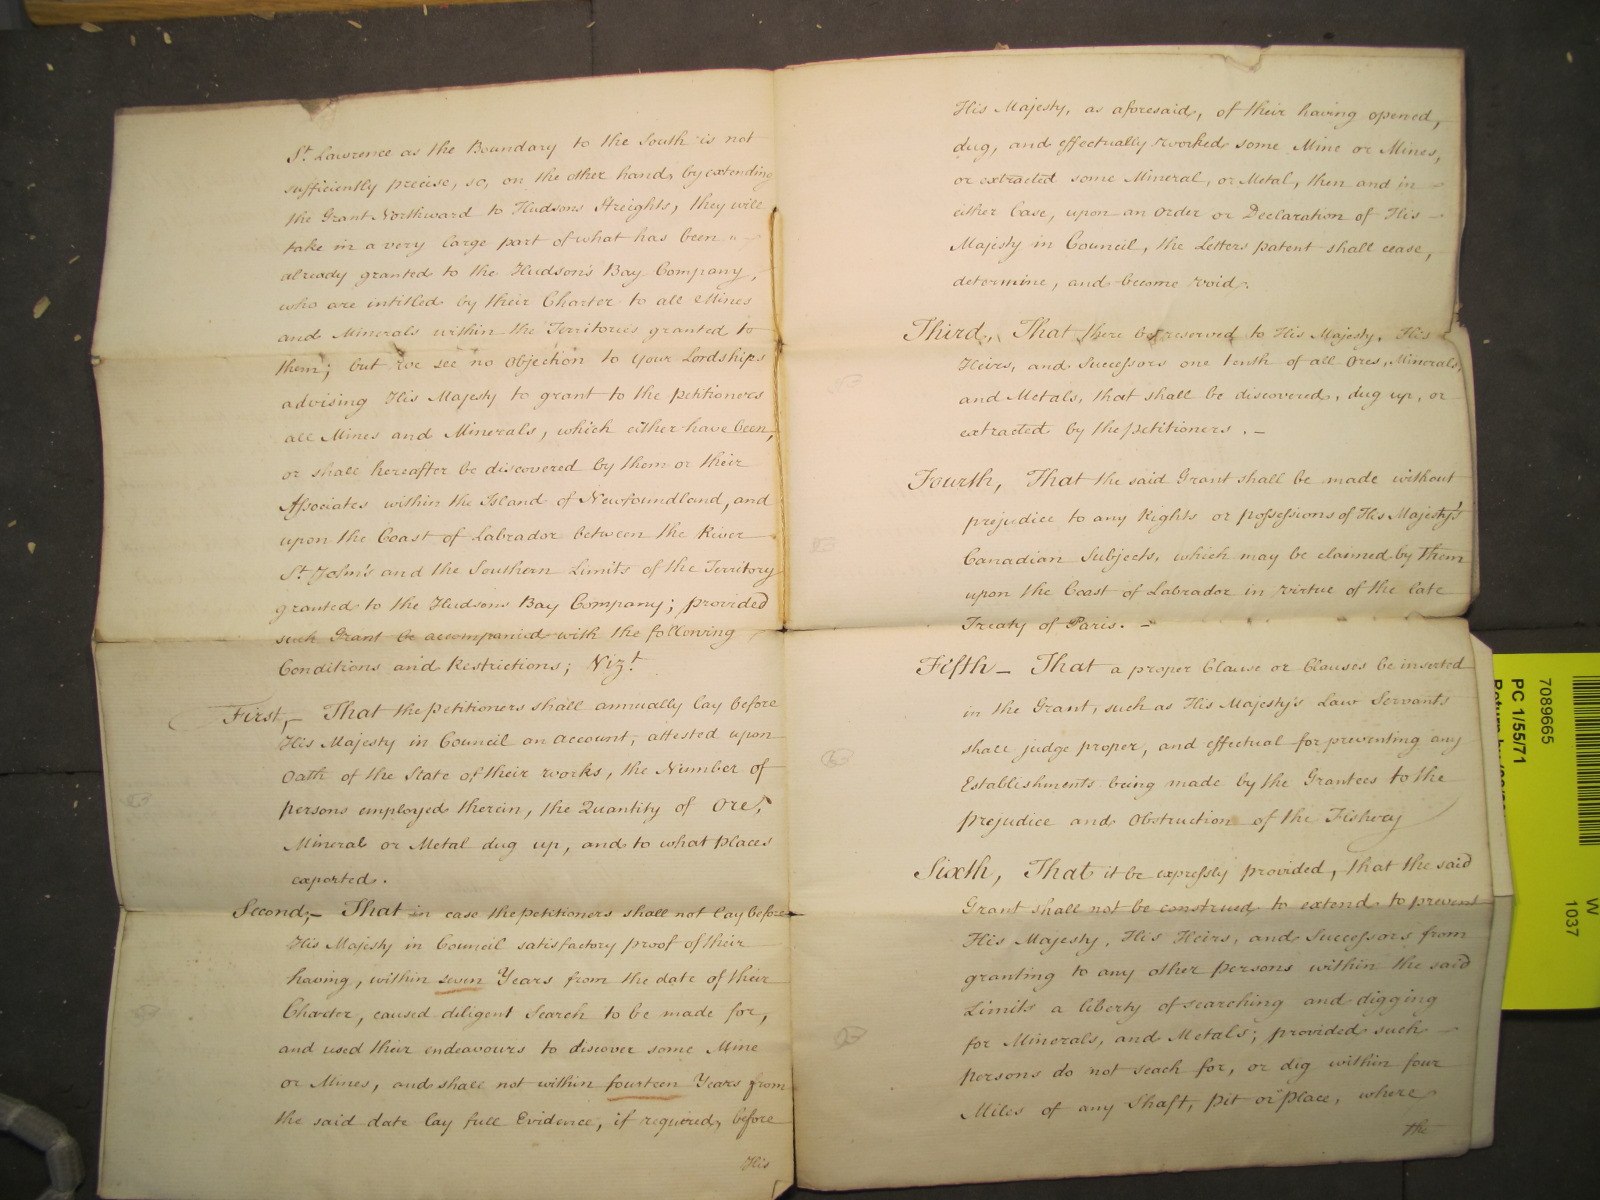 St. Lawrence as the Boundary to the South is not
sufficiently precise, so, on the other hand, by extending
the Grant Northward to Hudsons Streights, they will
take in a very large part of what has been
already granted to the Hudson's Bay Company,
who are intitled by their Charter to all Mines
and Minerals within the Territories granted to
them; but we see no Objection to your Lordships
advising His Majesty to grant to the Petitioners
all Mines and Minerals, which either have been,
or shall hereafter be discovered by them or their
Associates within the Island of Newfoundland, and
upon the Coast of Labrador between the River
St. John's and the Southern Limits of the Territory
granted to the Hudsons Bay Company; provided
such Grant be accompanied with the following
Conditions and Restrictions; Vizt.
First,— That the Petitioners shall annually lay before
His Majesty in Council an Account, attested upon
Oath of the State of their works, the Number of
persons employed therein, the Quantity of Ore,
Mineral or Metal dug up, and to what places
exported.
Second,— That in case the Petitioners shall not lay before
His Majesty in Council satisfactory proof of their
having, within seven Years from the date of their
Charter, caused diligent Search to be made for,
and used their endeavours to discover some Mine
or Mines, and shall not within fourteen Years from
the said date lay full Evidence, if required, before
His
His Majesty, as aforesaid, of their having opened,
dug, and effectually worked some Mine or Mines,
or extracted some Mineral, or Metal, then and in
either Case, upon an Order or Declaration of His
Majesty in Council, the Letters patent shall cease,
determine, and become void.
Third, That there be reserved to His Majesty, His
Heirs, and Successors one tenth of all Ores, Minerals,
and Metals, that shall be discovered, dug up, or
extracted by the Petitioners. —
Fourth, That the said Grant shall be made without
prejudice to any Rights or possessions of His Majesty's
Canadian Subjects, which may be claimed by them
upon the Coast of Labrador in virtue of the late
Treaty of Paris. —
Fifth— That a proper Clause or Clauses be inserted
in the Grant, such as His Majesty's Law Servants
shall judge proper, and effectual for preventing any
Establishments being made by the Grantees to the
prejudice and Obstruction of the Fishery
Sixth, That it be expressly provided, that the said
Grant shall not be construed to extend to prevent
His Majesty, His Heirs, and Successors from
granting to any other persons within the said
Limits a liberty of searching and digging
for Minerals, and Metals; provided such
persons do not seach for, or dig within four
Miles of any Shaft, pit or place, where
the
7089665
PC 1/55/71
W
1037